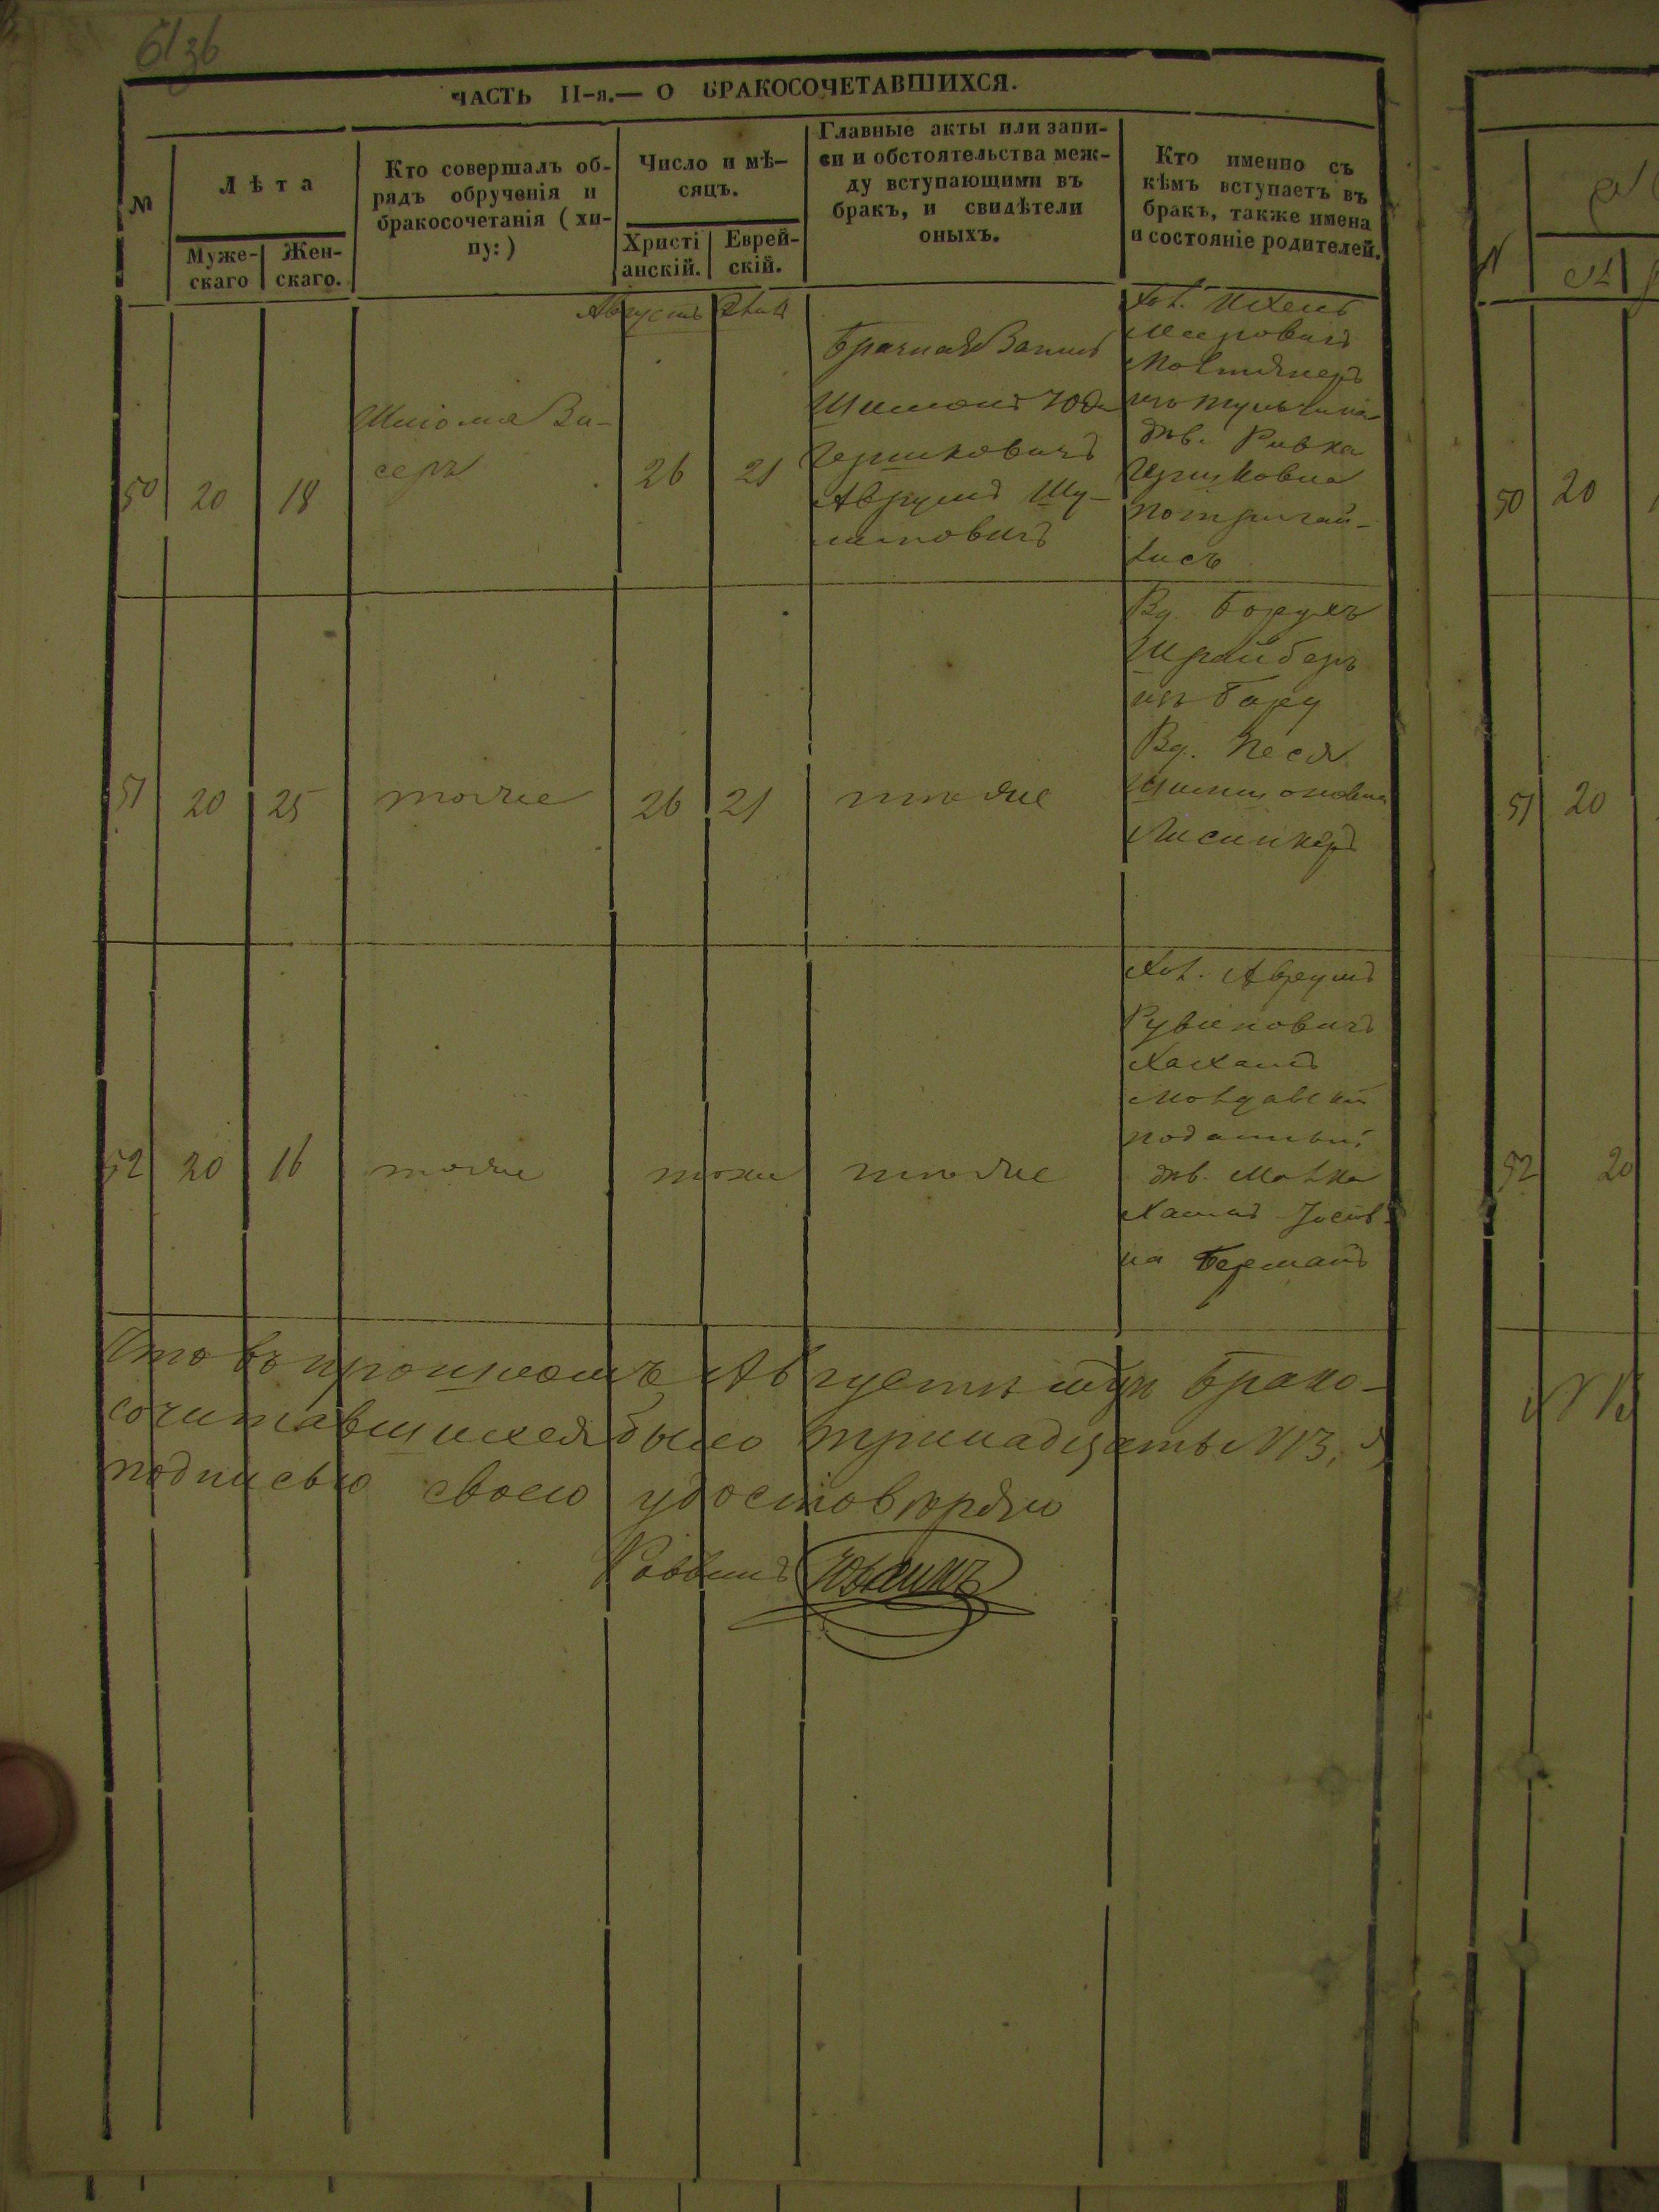 ЧАСТЬ II-я.— О БРАКОСОЧЕТАВШИХСЯ.
№
Лѣта
Муже-
скаго
Жен-
скаго.
Кто совершалъ об-
рядъ обрученія и
бракосочетанія (хи-
пу:)
Число и мѣ-
сяцъ.
Христі
анскій.
Еврей-
скій.
Главные акты или запи-
си и обстоятельства меж-
ду вступающими въ
бракъ, и свидѣтели
оныхъ.
Кто именно съ
кѣмъ вступаетъ въ
бракъ, также имена
и состояніе родителей.
Августъ
50
20
18
Шліома Ви-
серъ
26
21
Брачная Запись
Шимонъ Юда
Гершковичъ
Аврумъ Шу-
лимовичъ
Хол.
Мееровичъ
изъ Тульчина
дѣв. Ривка
Гершковна
51
20
25
тотже
26
21
тоже
Вд. Борухъ
Шрайберъ
изъ Бару
Вд. Песя
Шимшоновна
52
20
16
тотже
тоже
тоже
Хол. Аврумъ
Рувеновичъ
Хаханъ
Молдавскій
подданный
дѣв. Малка
Іосев-
на Берманъ
Что въ прошломъ Августѣ м-цѣ Брако-
сочитавшихся было тринадцать №13, въ
подписью своею удостовѣряю
Раввинъ
50
20
51
20
52
20